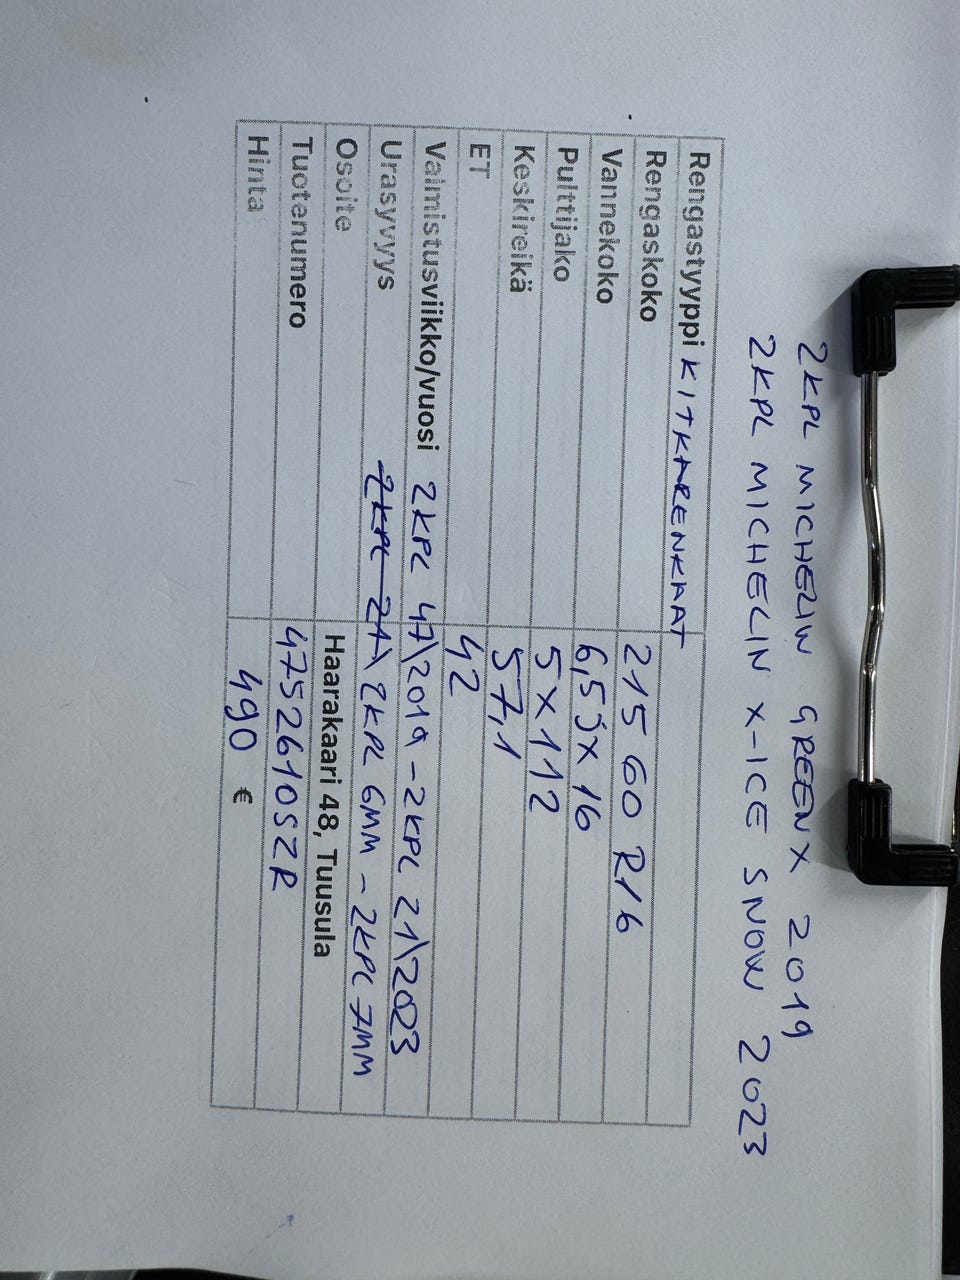 2KPL MICHELIN GREENX 2019
2KPL MICHELIN X-ICE SNOW 2023
Rengastyyppi KITKARENKAAT
Rengaskoko 215 60 R16
Vannekoko 6,5Jx16
Pulttijako 5x112
Keskireikä 57,1
ET 42
Valmistusviikko/vuosi 2KPL 47\2019 - 2KPL 21\2023
Urasyvyys 2KPL 21\ 2KPL 6MM - 2KPL 7MM
Osoite Haarakaari 48, Tuusula
Tuotenumero 4752610SZR
Hinta 490 €